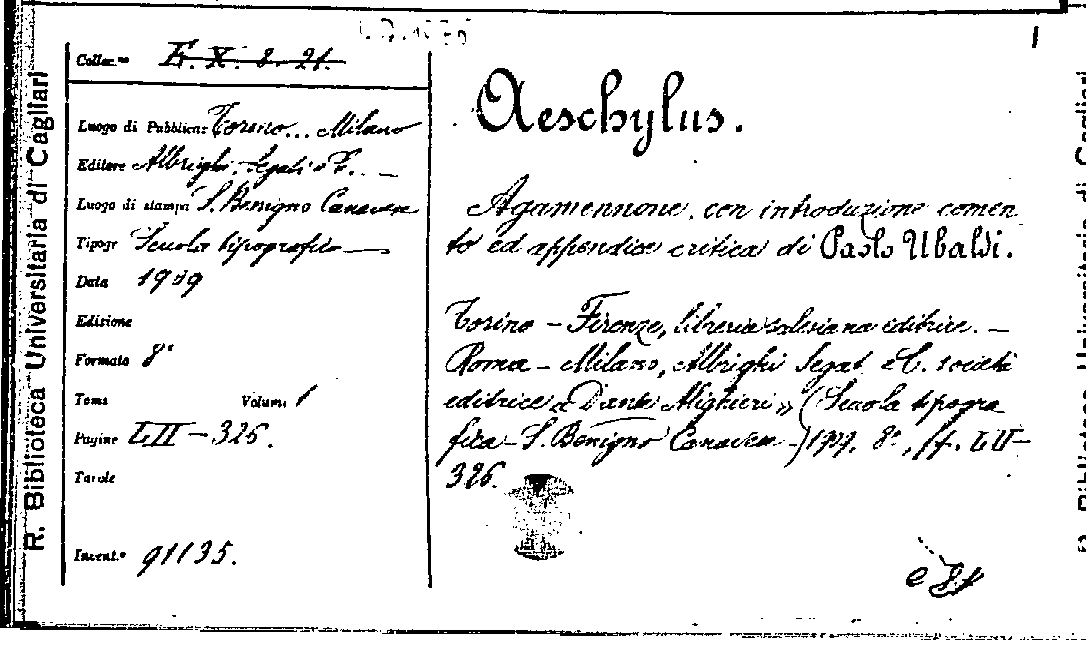 1
R. Biblioteca Universitaria di Cagliari
Colloc.ne E. X. 8. 21.
Luogo di Pubblicaz. Torino... Milano
Editore Albrighi, Segati e C. .
Luogo di stampa S. Benigno Canavese
Tipogr Scuola tipografica
Data 1909
Edizione
Formato 8°
Tomi Volumi 1
Pagine LII - 326.
Tavole
Invent.° 91135.
Aeschylus.
Agamennone. con introduzione comen
to ed appendice critica di Paolo Ubaldi.
Torino - Firenze, libreria salesiana editrice. -
Roma - Milano, Albrighi Segati e C. società
editrice "Dante Alighieri" (Scuola tipogra
fica - S. Benigno Canavese -) 1909. 8°, pp. LII -
326.